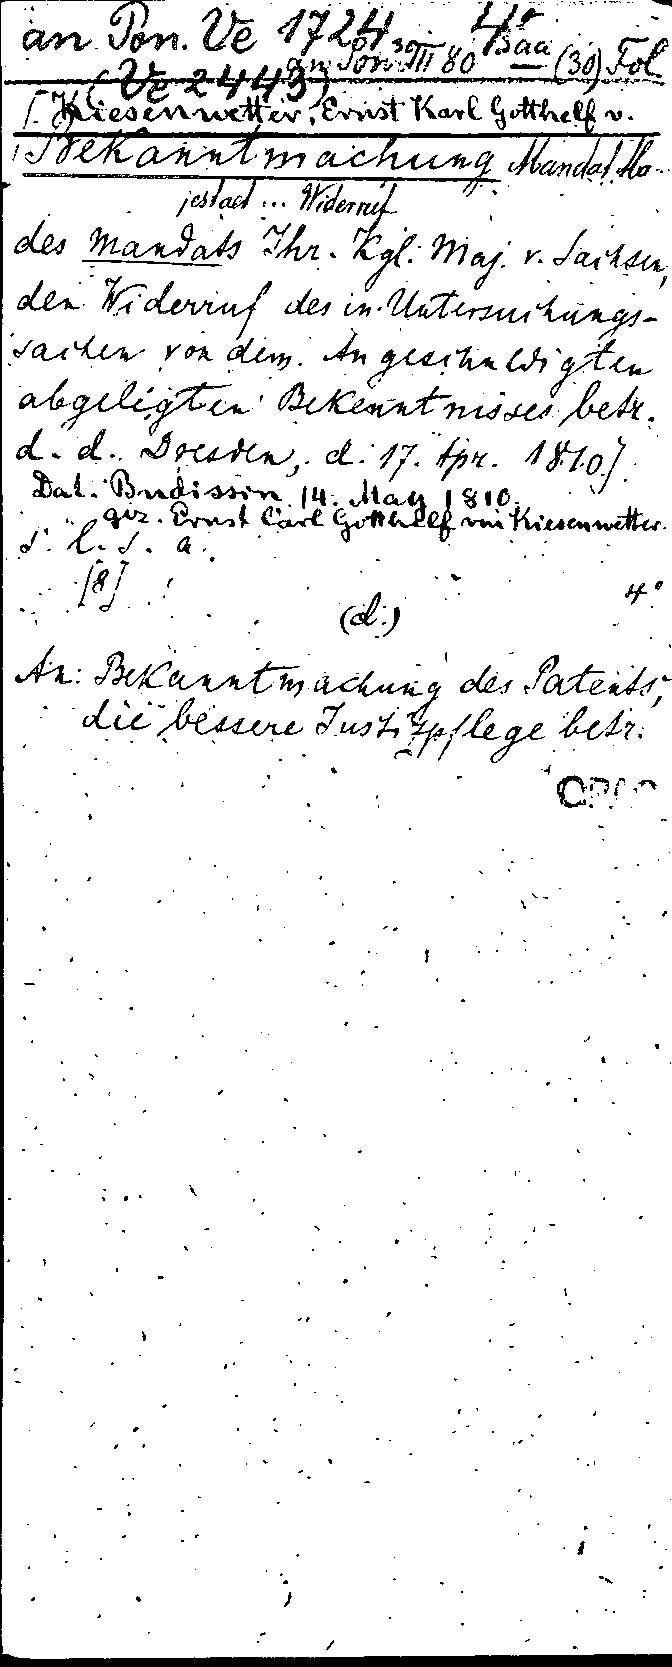 an Pon. Ve 1724, 4°
an Pon. III 80 Baa (30) Fol
(Ve 2443)
[. Kiesenwetter, Ernst Karl Gotthelf v.
Bekanntmachung Mandat Ma-
jestaet ... Widerruf
des Mandats Ihr. Kgl. Maj. v. Sachsen,
den Widerruf des in Untersuchungs-
sachen von dem Angeschuldigten
abgelegten Bekenntnisses betr.
d. d. Dresden, d. 17. Apr. 1810].
Dat. Budissin 14. May 1810.
gez. Ernst Carl Gotthelf von Kiesenwetter.
s. l. s. a.
[8] 4°
(d.)
An: Bekanntmachung des Patents,
die bessere Justizpflege betr.
OPAC